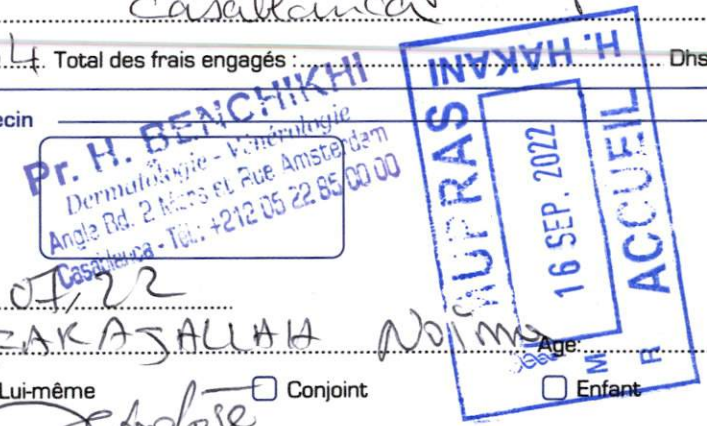 Casablanca
4. Total des frais engagés : Dhs
ecin
Pr. H. BENCHIKHI
Dermatologie - Vénérologie
Angle Bd. 2 Mars et Rue Amsterdam
Casablanca - Tél.: +212 05 22 85 00 00
MUPRAS
H. HAKANI
16 SEP. 2022
ACCUEIL
M R
07/22
ZAKAJALLAH Noima Age:
Lui-même Conjoint Enfant